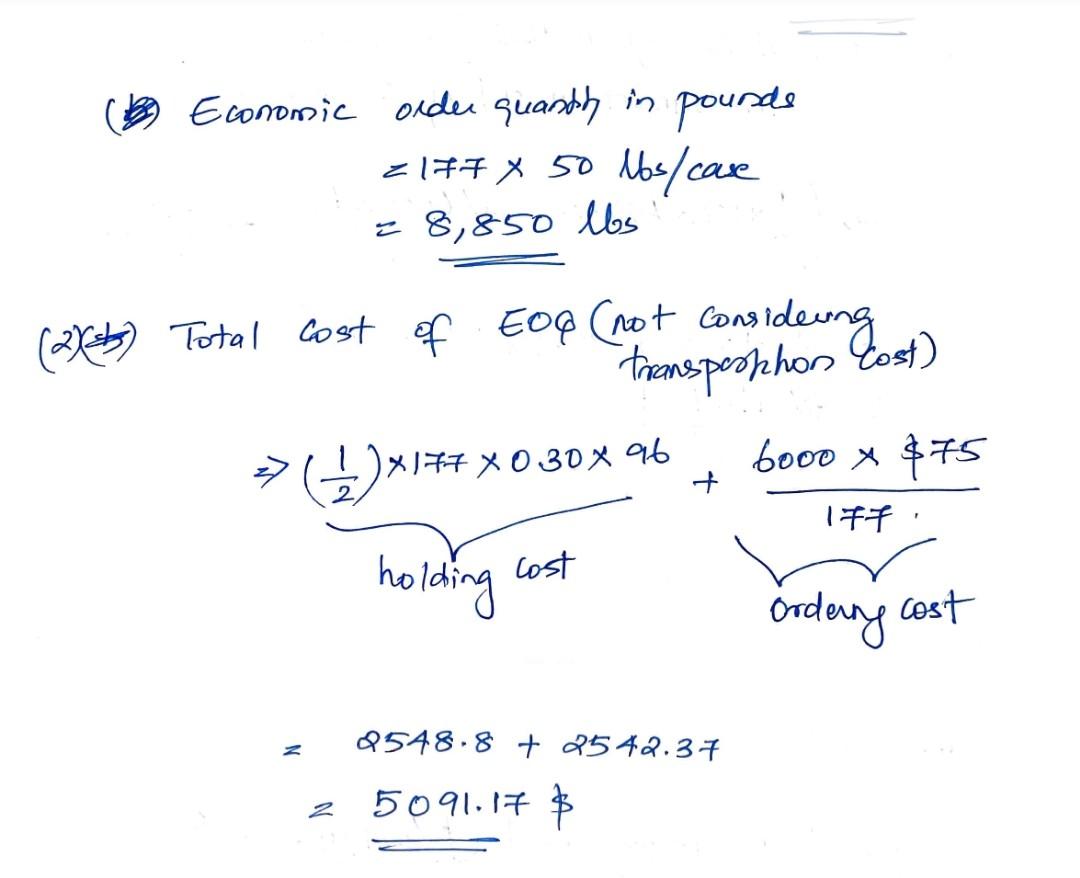 Economic order quantity in pounds
= 177 × 50 lbs/case
= 8,850 lbs
(2) Total Cost of EOQ (not considering
transportation Cost)
⇒ (1/2) × 177 × 0.30 × 96 + 6000 × $75 / 177
holding cost
ordering cost
= 2548.8 + 2542.37
= 5091.17 $